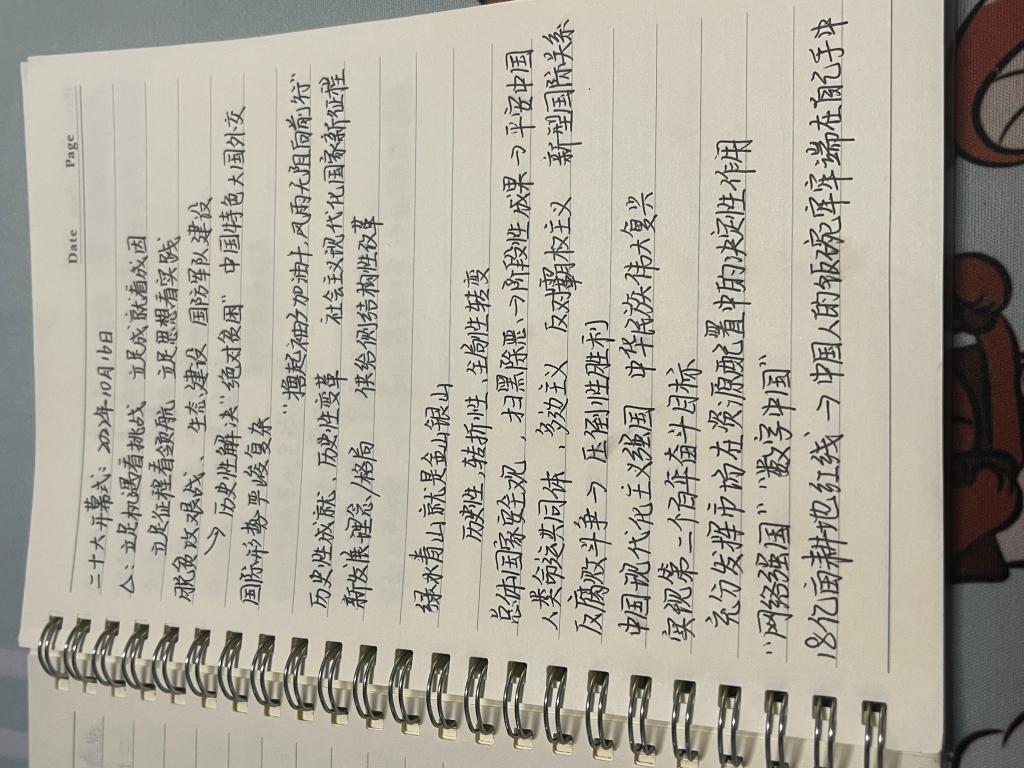 Date Page
二十大开幕式：2022年10月16日
△：立足机遇看挑战 立足成就看成因
立足征程看领航 立足思想看实践
脱贫攻艰战、生态建设 国防军队建设
↳历史性解决"绝对贫困" 中国特色大国外交
国际形势严峻复杂
"撸起袖子加油干，风雨无阻向前行"
历史性成就、历史性变革 社会主义现代化国家新征程
新发展理念/格局 供给侧结构性改革
绿水青山就是金山银山
历史性，转折性、全局性转变
总体国家安全观，扫黑除恶→阶段性成果→平安中国
人类命运共同体，多边主义 反对霸权主义 新型国际关系
反腐败斗争→压倒性胜利
中国现代化主义强国 中华民族伟大复兴
实现第二个百年奋斗目标
充分发挥市场在资源配置中的决定性作用
"网络强国""数字中国"
18亿亩耕地红线→中国人的饭碗牢牢端在自己手中